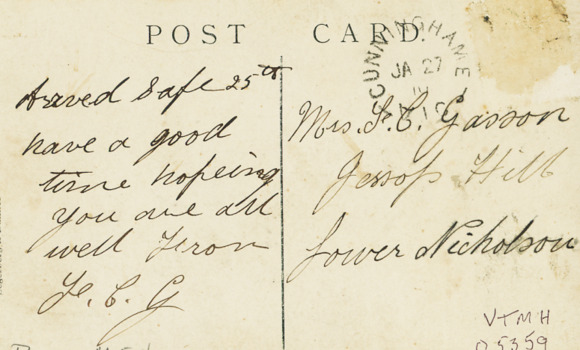 POST CARD.
CUNNINGHAME
JA 27
Arived Safe 25th
have a good
time hopeing
you are all
well From
F. C. G
Mrs. F. C. Gasson
Jessops Hill
Lower Nicholson
VTMH
05359